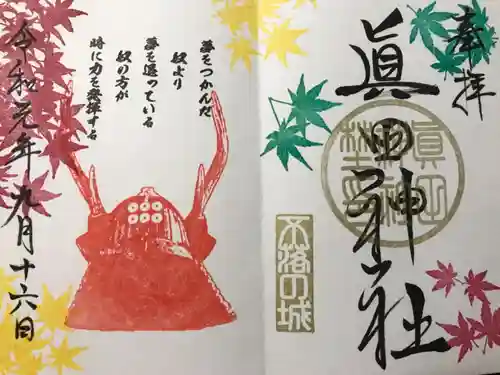 奉拝
眞田神社
不落の城
夢をつかんだ
奴より
夢を追っている
奴の方が
時に力を発揮する
令和元年九月十六日